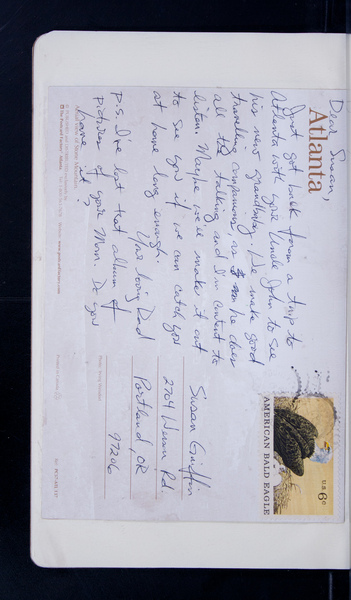 Dear Susan,
Atlanta
Just got back from a trip to
Atlanta with your Uncle John to see
his new grandbaby. We make good
travelling companions, as he does
all the talking and I'm content to
listen. Maybe we'll make it out
to see you if we can catch you
at home long enough.
Your loving Dad
P.S. I've lost that album of
pictures of your Mom. Do you
have it?
U.S. 6c
AMERICAN BALD EAGLE
Susan Griffin
2704 Rd.
Portland, OR
97206